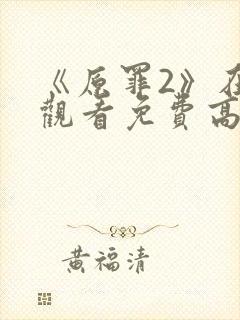 《原罪2》在
觀看免費高
黃福清